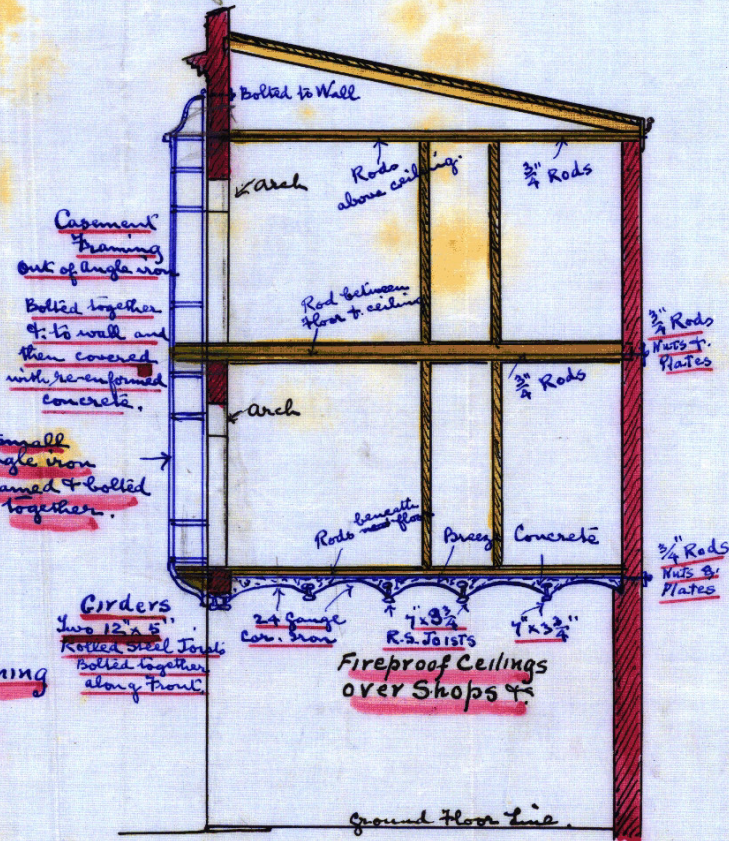 Bolted to Wall
arch
Rods
above ceiling.
3/4" Rods
Casement
Framing
Out of Angle iron
Bolted together
&. to wall and
then covered
with re-enformed
concrete.
Rod between
Floor &. ceiling
3/4" Rods
3/4" Rods
Nuts &.
Plates
arch
small
angle iron
framed & bolted
together.
Rods beneath
new floor
Breeze
Concrete
3/4" Rods
Nuts &
Plates
Girders
Two 12" x 5"
Rolled Steel Joists
Bolted together
along Front.
24 Gauge
Cor. Iron
7" x 3 3/4"
R.S. Joists
7" x 3 3/4"
Fireproof Ceilings
over Shops &
Ground Floor Line.